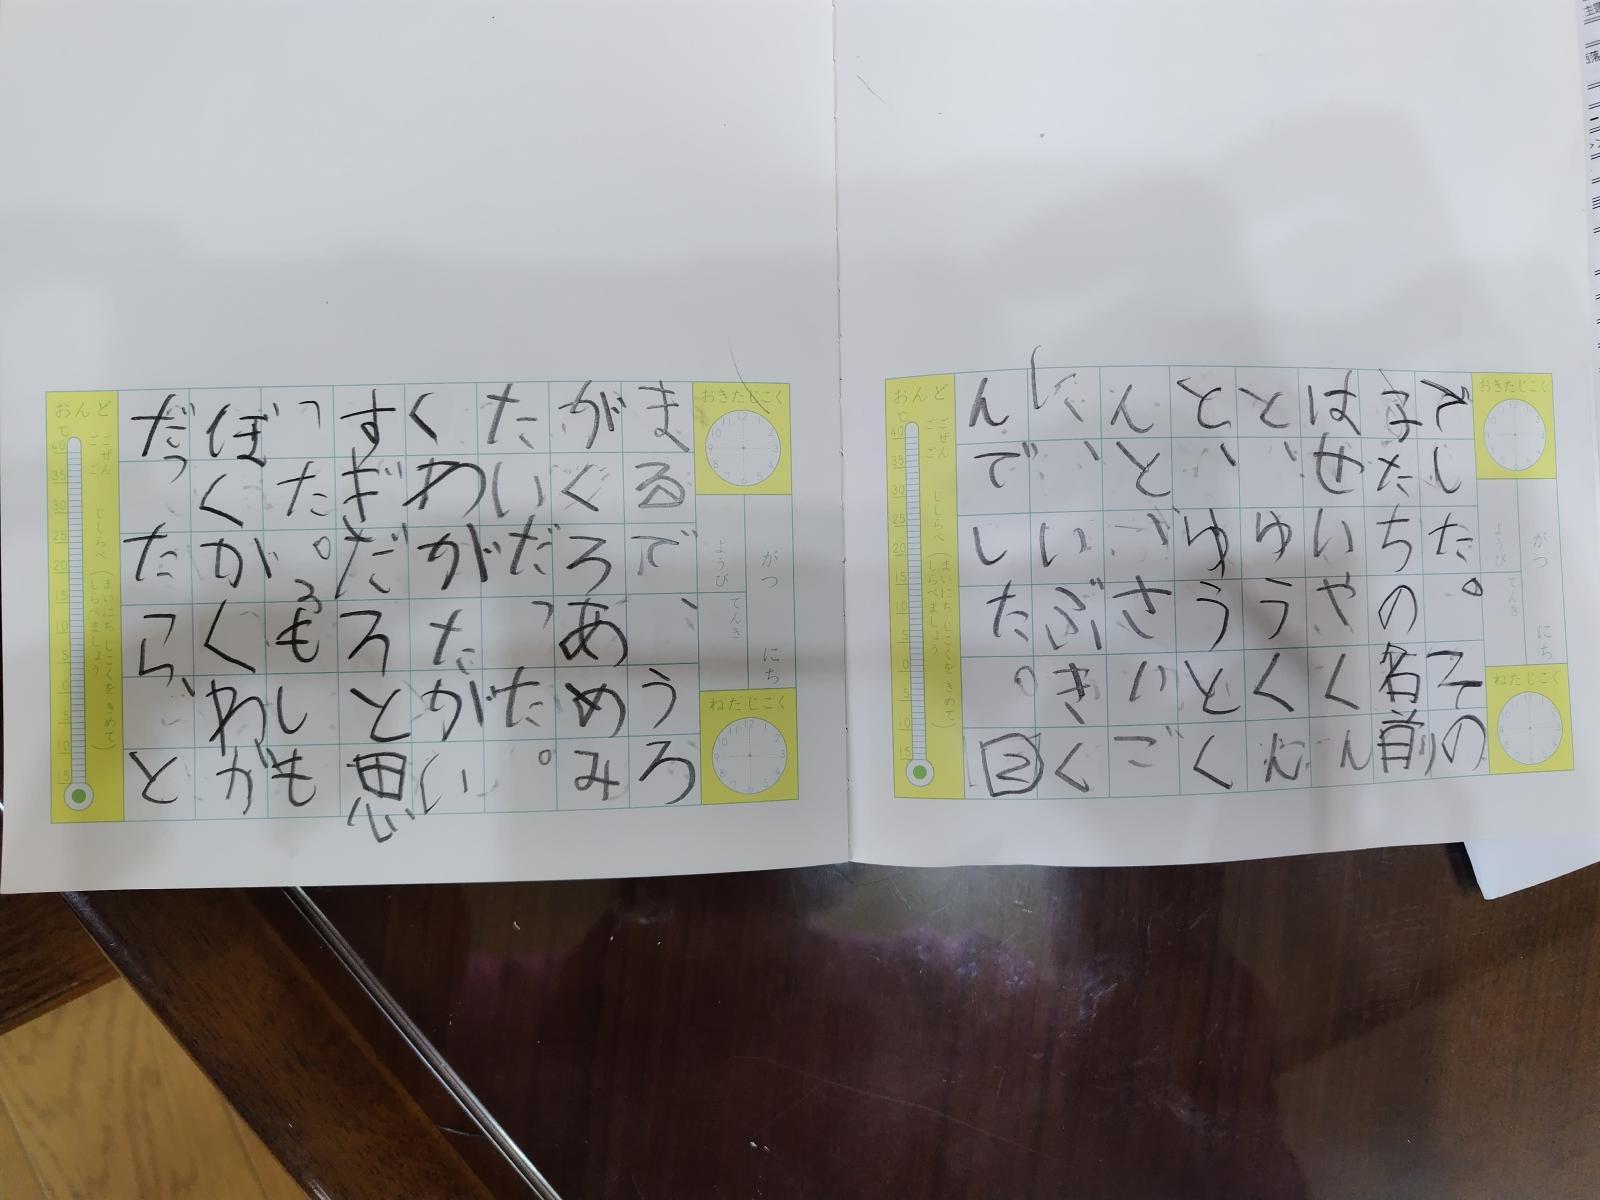 おきたじこく
がつ　にち
ようび　てんき
ねたじこく
でした。その
子たちの名前
はせいやくん
と、ゆうくん
と、ゆうとく
んと、さいご
に、いぶきく
んでした。②
おんど
ごぜん
ごご　じしらべ
(まいにち じこくを きめて しらべましょう)
おきたじこく
がつ　にち
ようび　てんき
ねたじこく
まるで、うろ
がくろあめみ
たいだった。
くわがたがい
すぎだろと思
った。もしも
ぼくがくわが
だったら、と
おんど
ごぜん
ごご　じしらべ
(まいにち じこくを きめて しらべましょう)